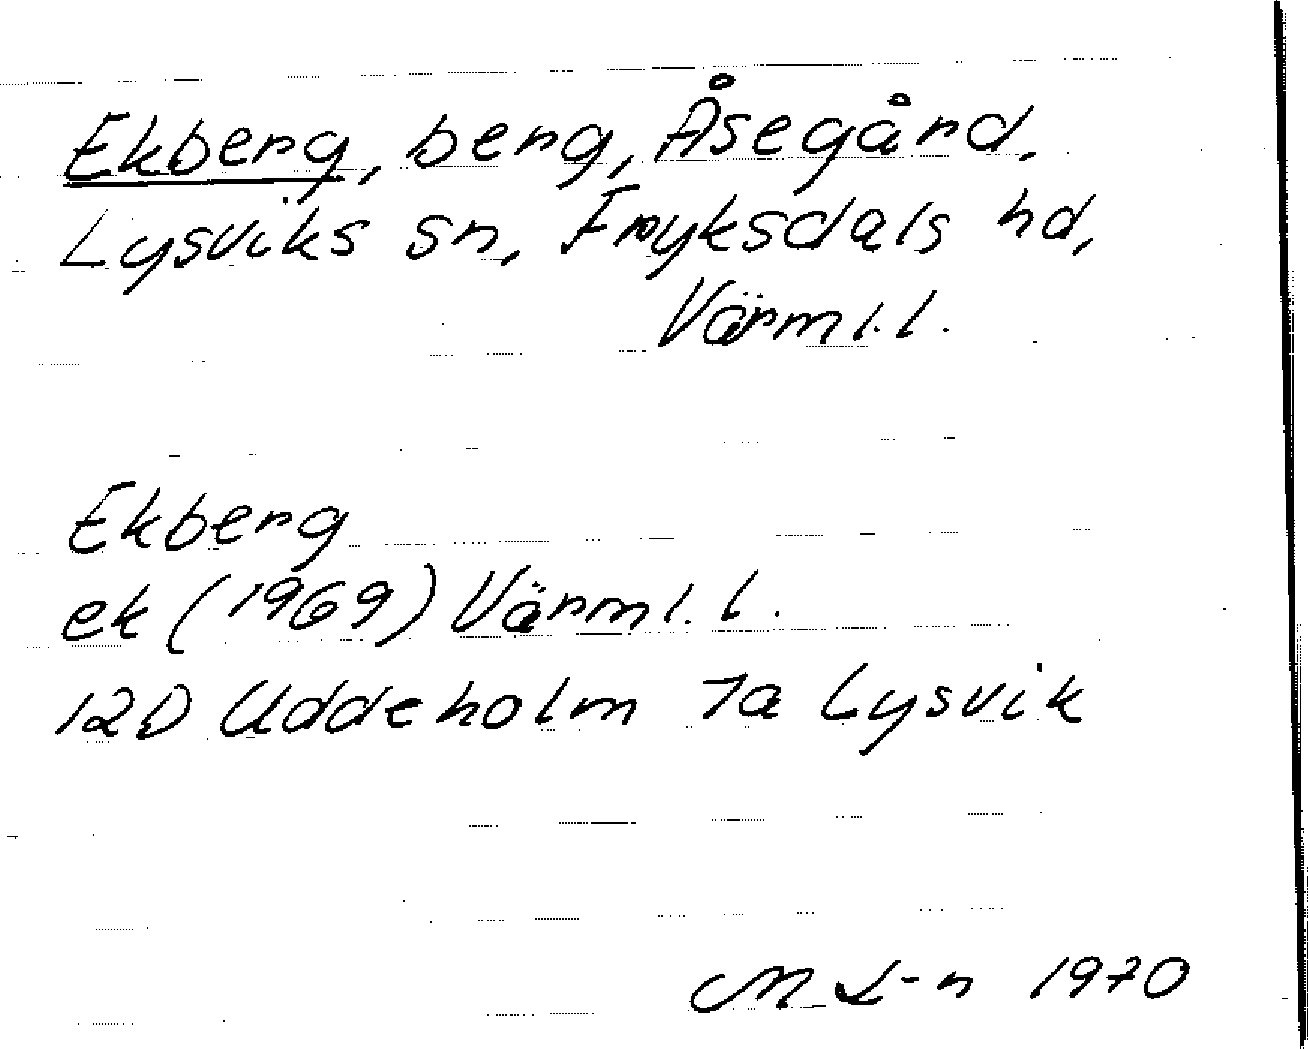 Ekberg, berg, Åsegård,
Lysviks sn, Fryksdals hd,
Värml. l.
Ekberg
ek (1969) Värml. l.
12D Uddeholm 7a Lysvik
M L-n 1970